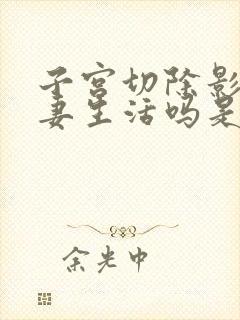 子宫切除影
妻生活吗是
余光中